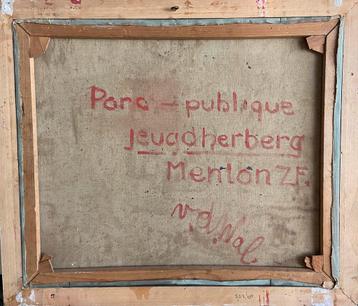 Parc - publique
jeugdherberg
Menton Z.F.
v.d. Wal